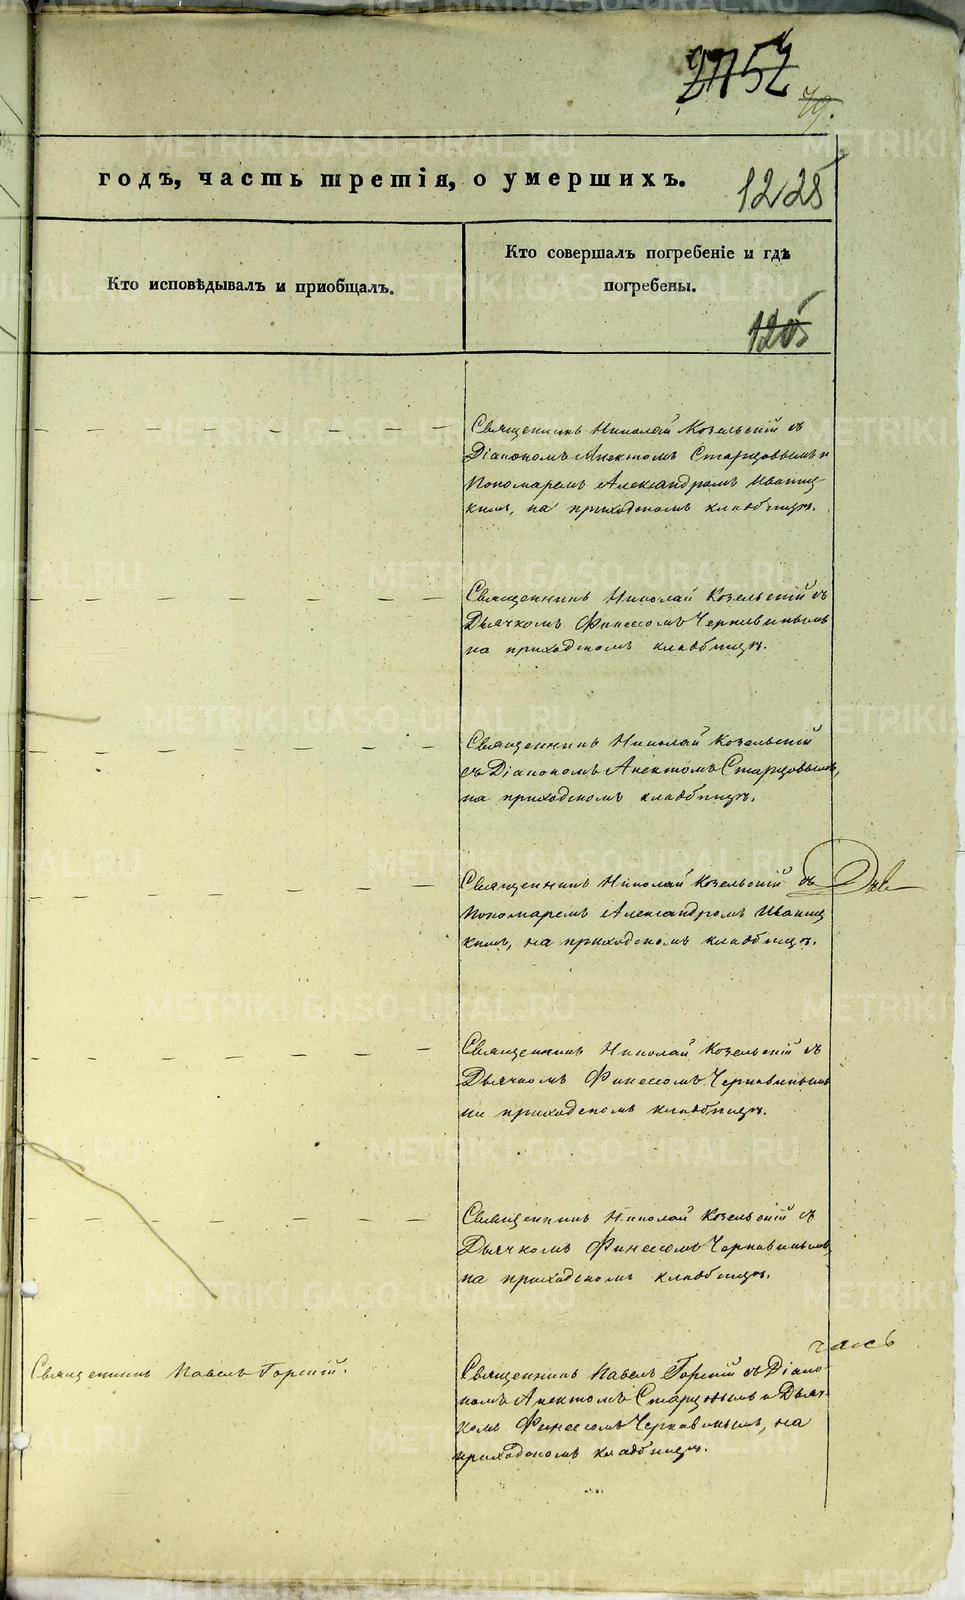 79.
годъ, часть третія, о умершихъ.
1228
Кто исповѣдывалъ и приобщалъ.
Кто совершалъ погребеніе и гдѣ
погребены.
1205
Священникъ Николай Козельскій съ
Діакономъ Анектомъ Старцовымъ и
Пономаремъ Александромъ Иваниц-
кимъ, на приходскомъ кладбищѣ.
Священникъ Николай Козельскій съ
Дьячкомъ Финесомъ Чернавинымъ
на приходскомъ кладбищѣ.
Священникъ Николай Козельскій
съ Діакономъ Анектомъ Старцовымъ,
на приходскомъ кладбищѣ.
Священникъ Николай Козельскій съ
Пономаремъ Александромъ Иваниц
кимъ, на приходскомъ кладбищѣ.
Священникъ Николай Козельскій съ
Дьячкомъ Финесомъ Чернавинымъ
на приходскомъ кладбищѣ.
Священникъ Николай Козельскій съ
Дьячкомъ Финесомъ Чернавинымъ,
на приходскомъ кладбищѣ.
Священникъ Павелъ Горскій.
Священникъ Павелъ Горскій съ Діако-
номъ Анектомъ Старцовымъ и Дьяч-
комъ Финесомъ Чернавинымъ, на
приходскомъ кладбищѣ.
METRIKI.GASO-URAL.RU